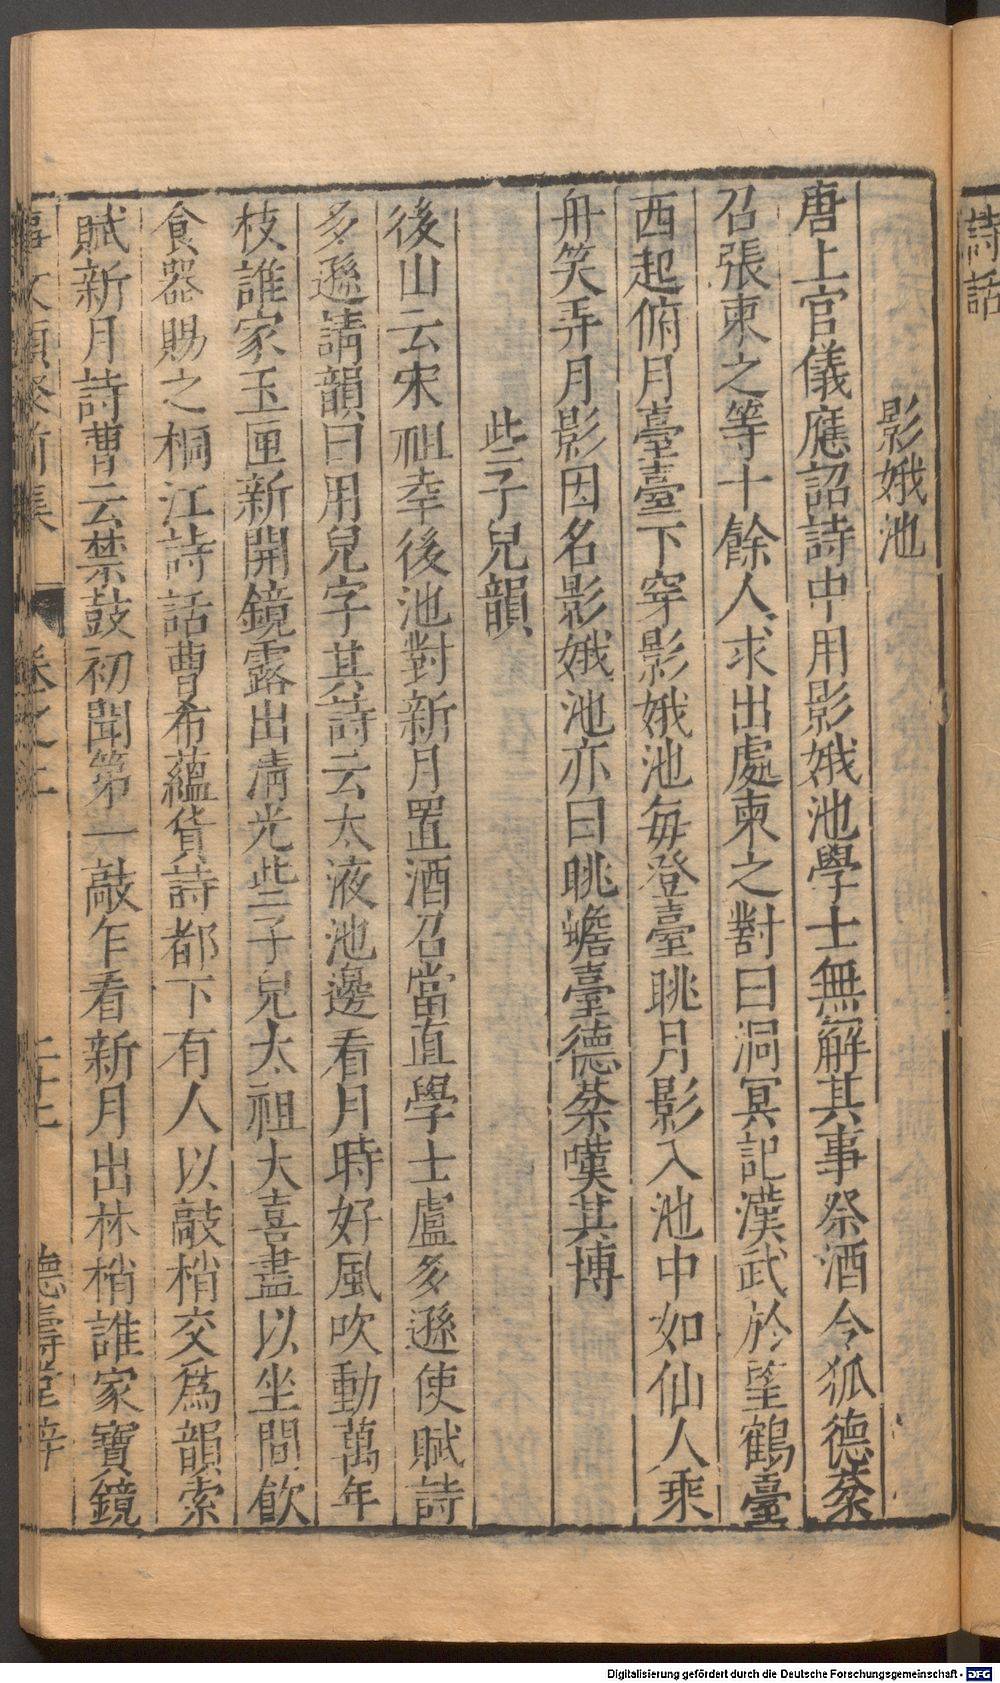 詩話
影娥池
唐上官儀應詔詩中用影娥池學士無解其事祭酒令狐德棻
召張柬之等十餘人求出處柬之對曰洞冥記漢武於望鶴臺
西起俯月臺臺下穿影娥池每登臺眺月影入池中如仙人乘
舟笑弄月影因名影娥池亦曰眺蟾臺德棻嘆其博
些子兒韻
後山云宋祖幸後池對新月置酒召當直學士盧多遜使賦詩
多遜請韻曰用兒字其詩云太液池邊看月時好風吹動萬年
枝誰家玉匣新開鏡露出清光些子兒太祖大喜盡以坐間飲
食器賜之桐江詩話曹希蘊貨詩都下有人以敲梢交爲韻索
賦新月詩曹云禁鼓初聞第一敲乍看新月出林梢誰家寶鏡
事文類聚前集 卷之二 二十七 德壽堂梓
Digitalisierung gefördert durch die Deutsche Forschungsgemeinschaft - DFG